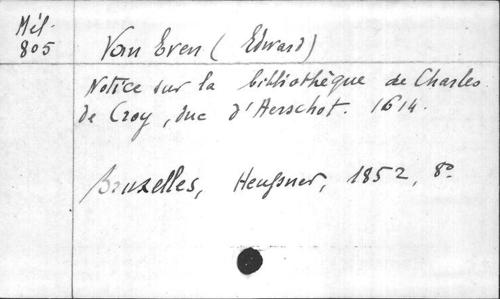 Mél.
805
Van Even (Edward)
Notice sur la bibliothèque de Charles
de Croy, duc d'Aerschot. 1614.
Bruxelles, Heußner, 1852, 8º